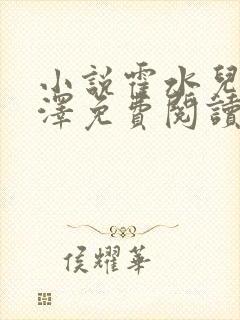 小說霍水兒
澤免費閱讀
侯耀華